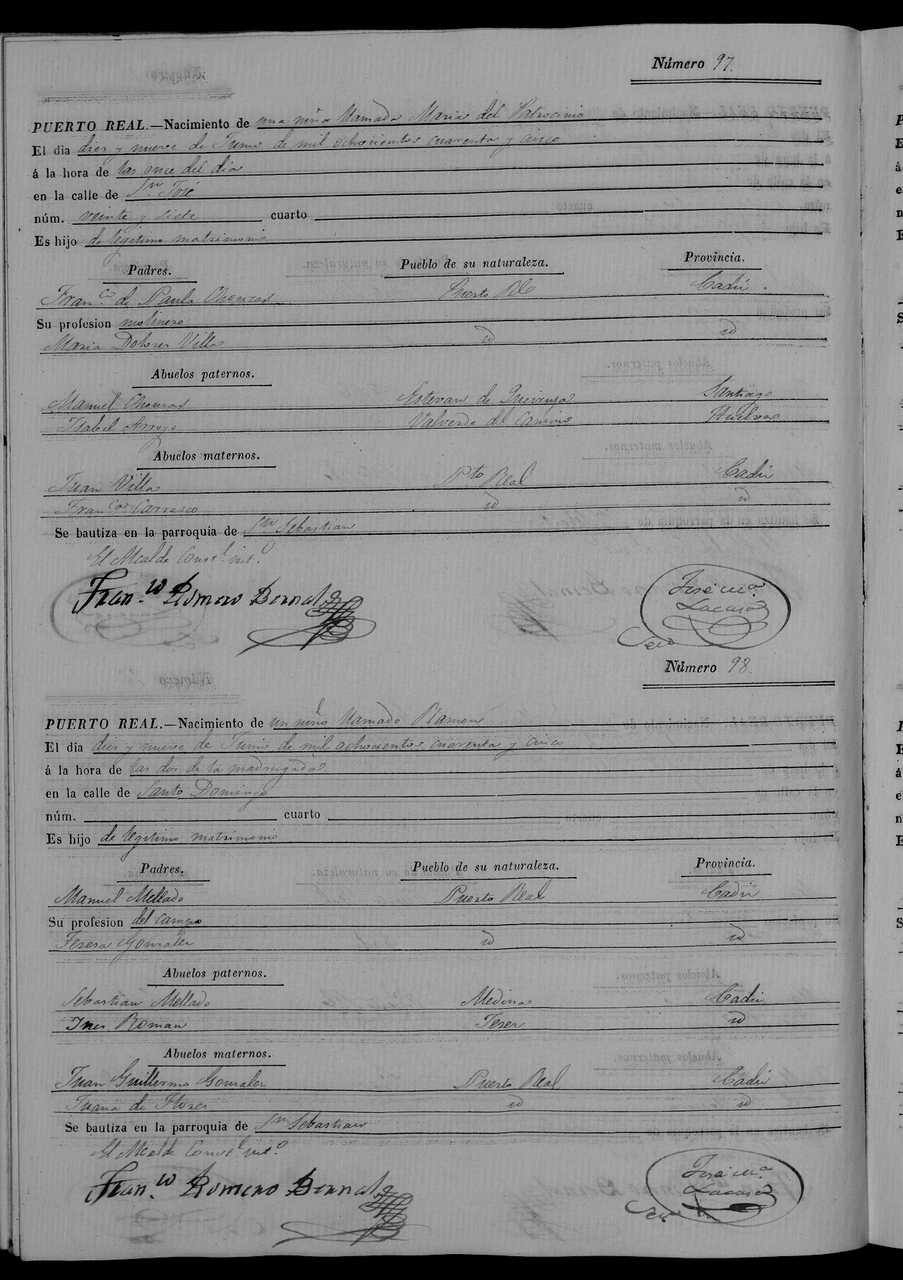 Número 97.
PUERTO REAL.—Nacimiento de una niña llamada Maria del Patrocinio
El dia diez y nueve de Junio de mil ochocientos cuarenta y cinco
á la hora de las once del dia
en la calle de Sn José
núm. veinte y siete cuarto
Es hijo de legitimo matrimonio
Padres. Pueblo de su naturaleza. Provincia.
Franco de Paula Puerto Rl Cadiz.
Su profesion molinero
Maria Dolores Villa id id
Abuelos paternos.
Manuel Estevan de Santiago
Isabel Arroyo Valverde del Camino Huelva
Abuelos maternos.
Juan Villa Pto Real Cadiz
Franca Carrasco id id
Se bautiza en la parroquia de Sn Sebastian
El Alcalde Constl
Franco Romero Bernal
José Ma
Lacasa
Srio
Número 98.
PUERTO REAL.—Nacimiento de un niño llamado Ramon
El dia diez y nueve de Junio de mil ochocientos cuarenta y cinco
á la hora de las dos de la madrugada
en la calle de Santo Domingo
núm. cuarto
Es hijo de legitimo matrimonio
Padres. Pueblo de su naturaleza. Provincia.
Manuel Mellado Puerto Real Cadiz
Su profesion del campo
Teresa Gonzalez id id
Abuelos paternos.
Sebastian Mellado Medina Cadiz
Ines Roman Jerez id
Abuelos maternos.
Juan Guillermo Gonzalez Puerto Real Cadiz
Juana de Flores id id
Se bautiza en la parroquia de Sn Sebastian
El Alcalde Constl
Franco Romero Bernal
José Ma
Lacasa
Srio